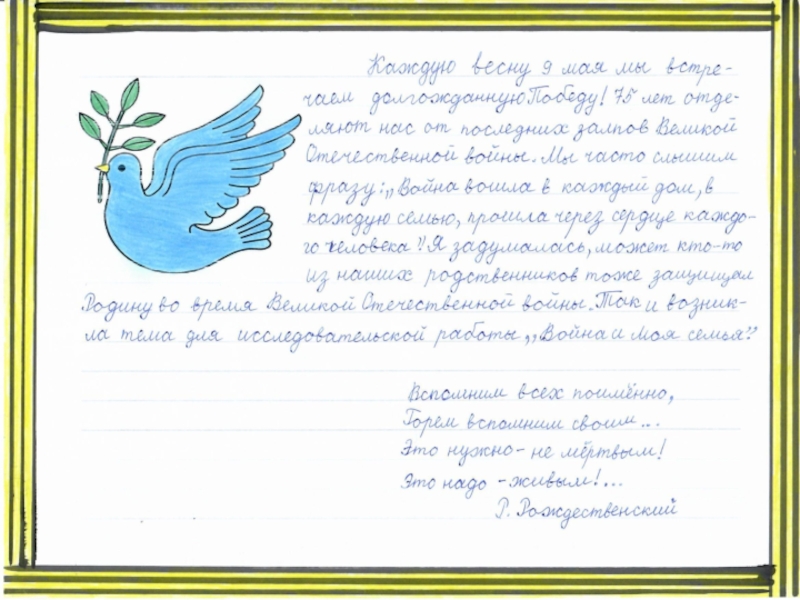 Каждую весну 9 мая мы встре-
чаем долгожданную Победу! 75 лет отде-
ляют нас от последних залпов Великой
Отечественной войны. Мы часто слышим
фразу: „Война вошла в каждый дом, в
каждую семью, прошла через сердце каждо-
го человека". Я задумалась, может кто-то
из наших родственников тоже защищал
Родину во время Великой Отечественной войны. Так и возник-
ла тема для исследовательской работы „Война и моя семья".
Вспомним всех поимённо,
Горем вспомним своим...
Это нужно - не мёртвым!
Это надо - живым!...
Р. Рождественский